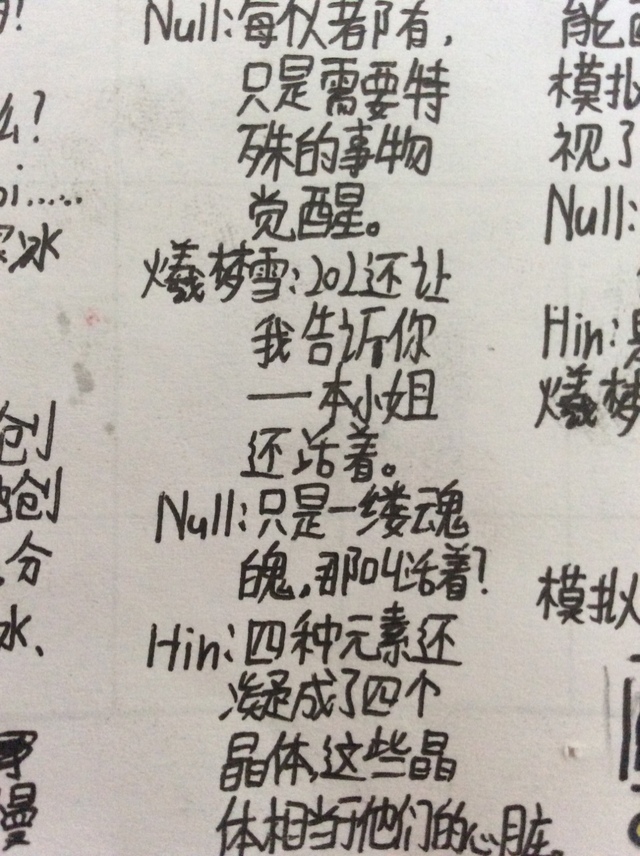 么?
oi......
冰
创
创
分
冰、
Null:每似者都有,
只是需要特
殊的事物
觉醒。
爔梦雪:202还让
我告诉你
——本小姐
还活着。
Null:只是一缕魂
魄,那叫活着?
Hin:四种元素还
凝成了四个
晶体,这些晶
体相当于他们的心脏。
能
模拟
视了
Null:
Hin:
爔梦
模拟